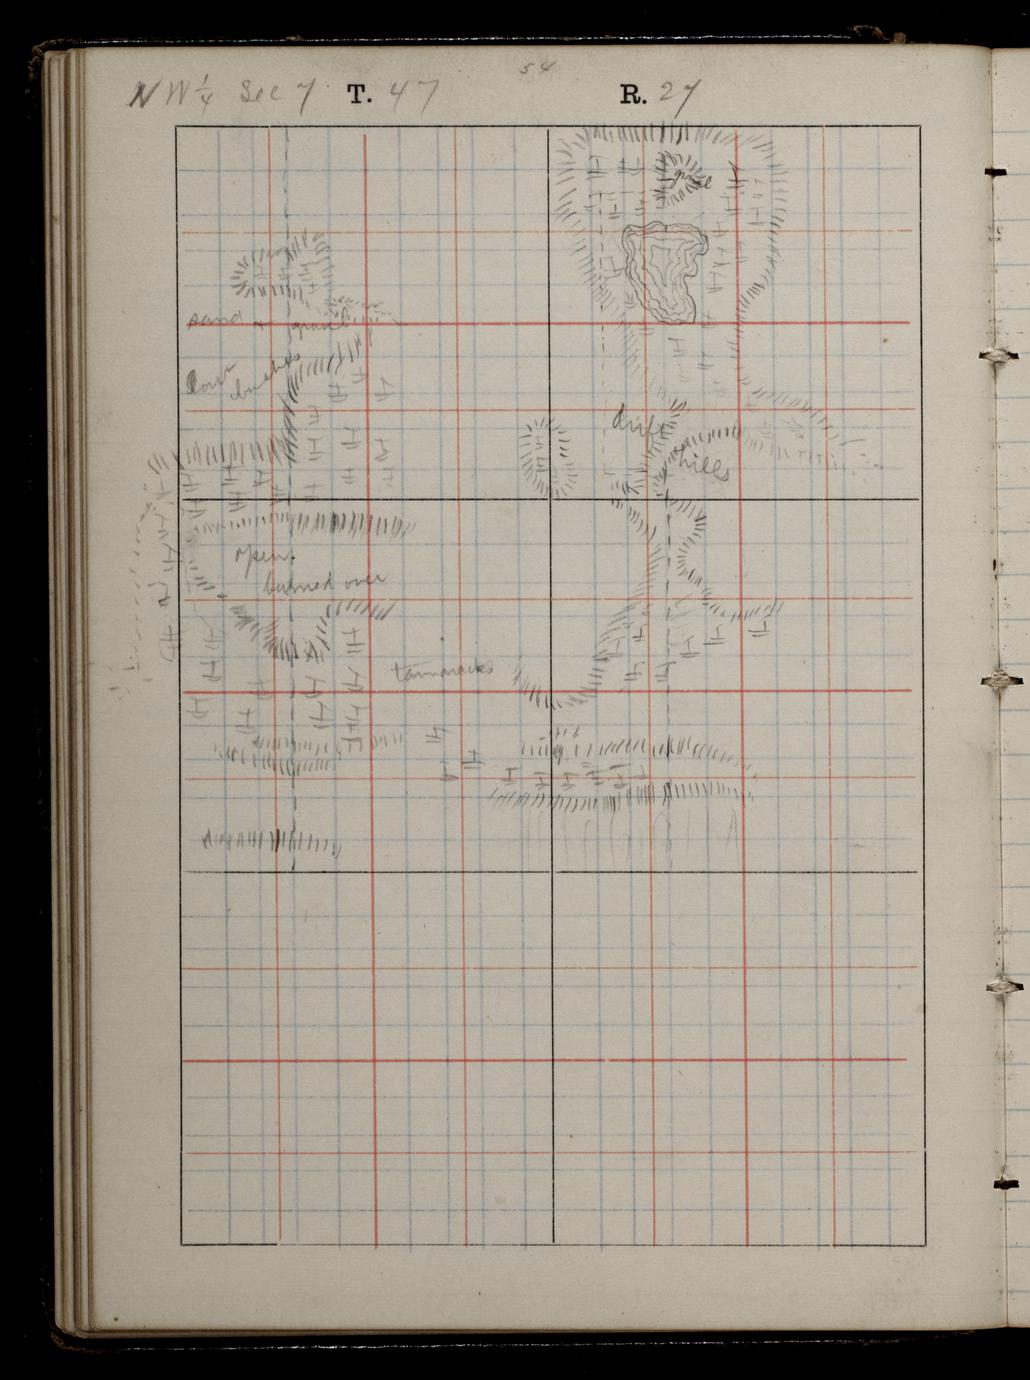 54
NW 1/4 Sec 7 T. 47 R. 27
gravel
sand + gravel
low
bushes
drift
hills
open
burned over
tamaracks